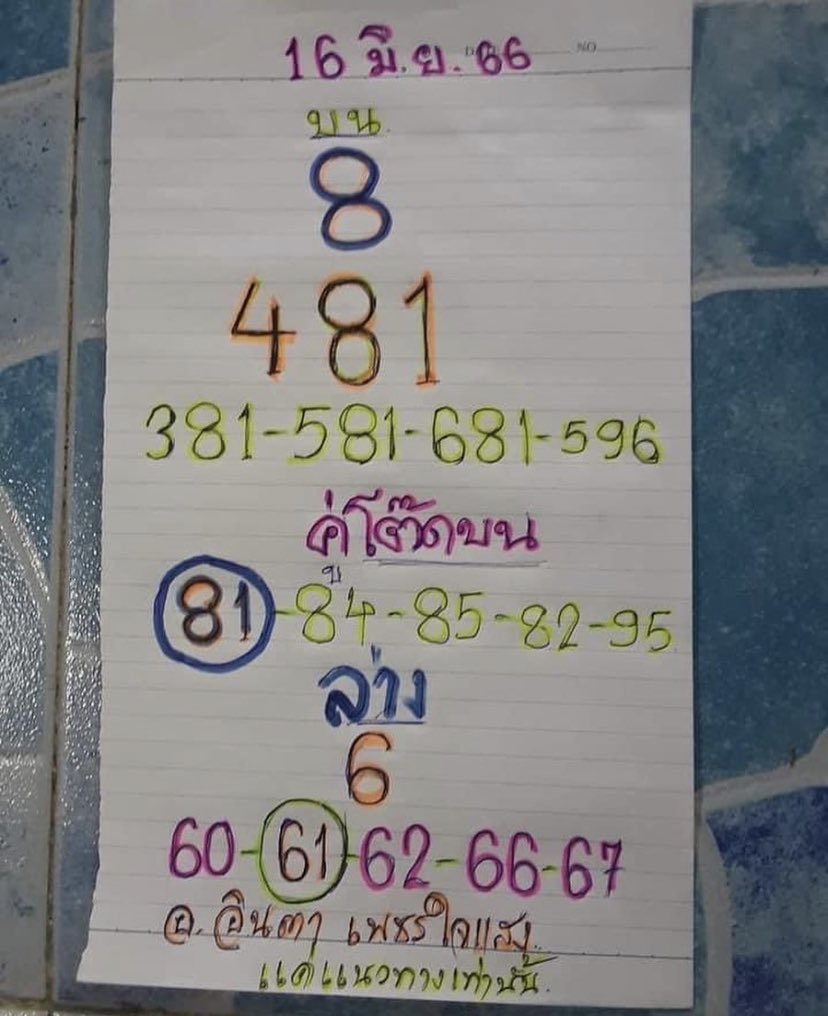 16 มิ.ย. 66 NO
บน
8
481
381-581-681-596
คู่โต๊ดบน
81-84-85-82-95
ล่าง
6
60-61-62-66-67
อ. อินตา เพชรใจแสง
แค่แนวทางเท่านั้น.